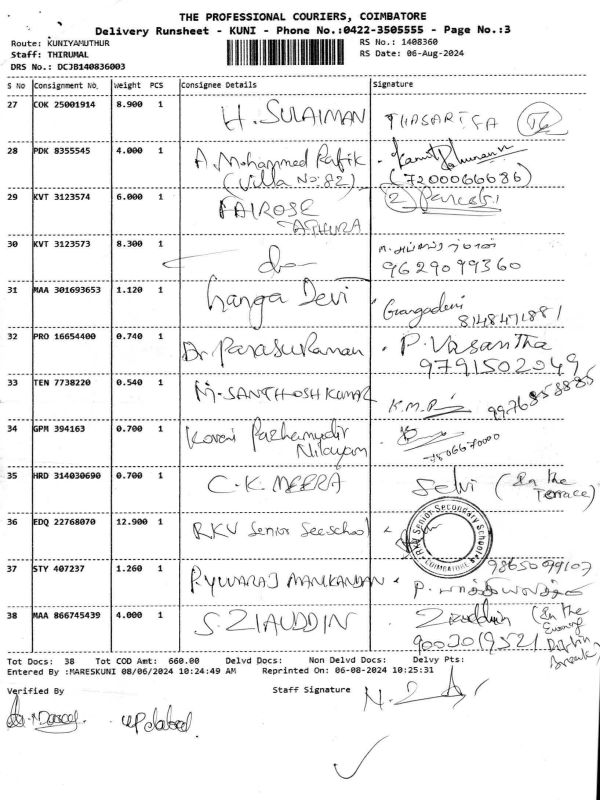 THE PROFESSIONAL COURIERS, COIMBATORE
Delivery Runsheet - KUNI - Phone No.:0422-3505555 - Page No.:3
Route: KUNIYAMUTHUR
Staff: THIRUMAL
DRS No.: DCJB140836003
RS No.: 1408360
RS Date: 06-Aug-2024
S No Consignment No. Weight PCS Consignee Details Signature
27 COK 25001914 8.900 1 H. SULAIMAN
28 PDK 8355545 4.000 1 A. Mohammed Rafik
(Villa No: 82) (7200066686)
29 KVT 3123574 6.000 1 FAIROSE (2) Parcels
30 KVT 3123573 8.300 1
9629099360
31 MAA 301693653 1.120 1 Ganga Devi Gangadevi
8148471881
32 PRO 16654400 0.740 1 Dr Parasuraman P. Vasantha
9791502049
33 TEN 7738220 0.540 1 M. SANTHOSH KUMAR K.M.P 9976858885
34 GPM 394163 0.700 1 Kovai Pazhamudir
Nilayam 7506670000
35 HRD 314030690 0.700 1 C.K. MEERA Selvi (In the
Terrace)
36 EDQ 22768070 12.900 1 RKV Senior Sec school RKV Senior Secondary School COIMBATORE
37 STY 407237 1.260 1 P. YUVARAJ MANIKANDAN 9865099107
38 MAA 866745439 4.000 1 S. ZIAUDDIN Ziauddin (In the
Evening
9003019521
Tot Docs: 38 Tot COD Amt: 660.00 Delvd Docs: Non Delvd Docs: Delvy Pts:
Entered By :MARESKUNI 08/06/2024 10:24:49 AM Reprinted On: 06-08-2024 10:25:31
Verified By Staff Signature
updated